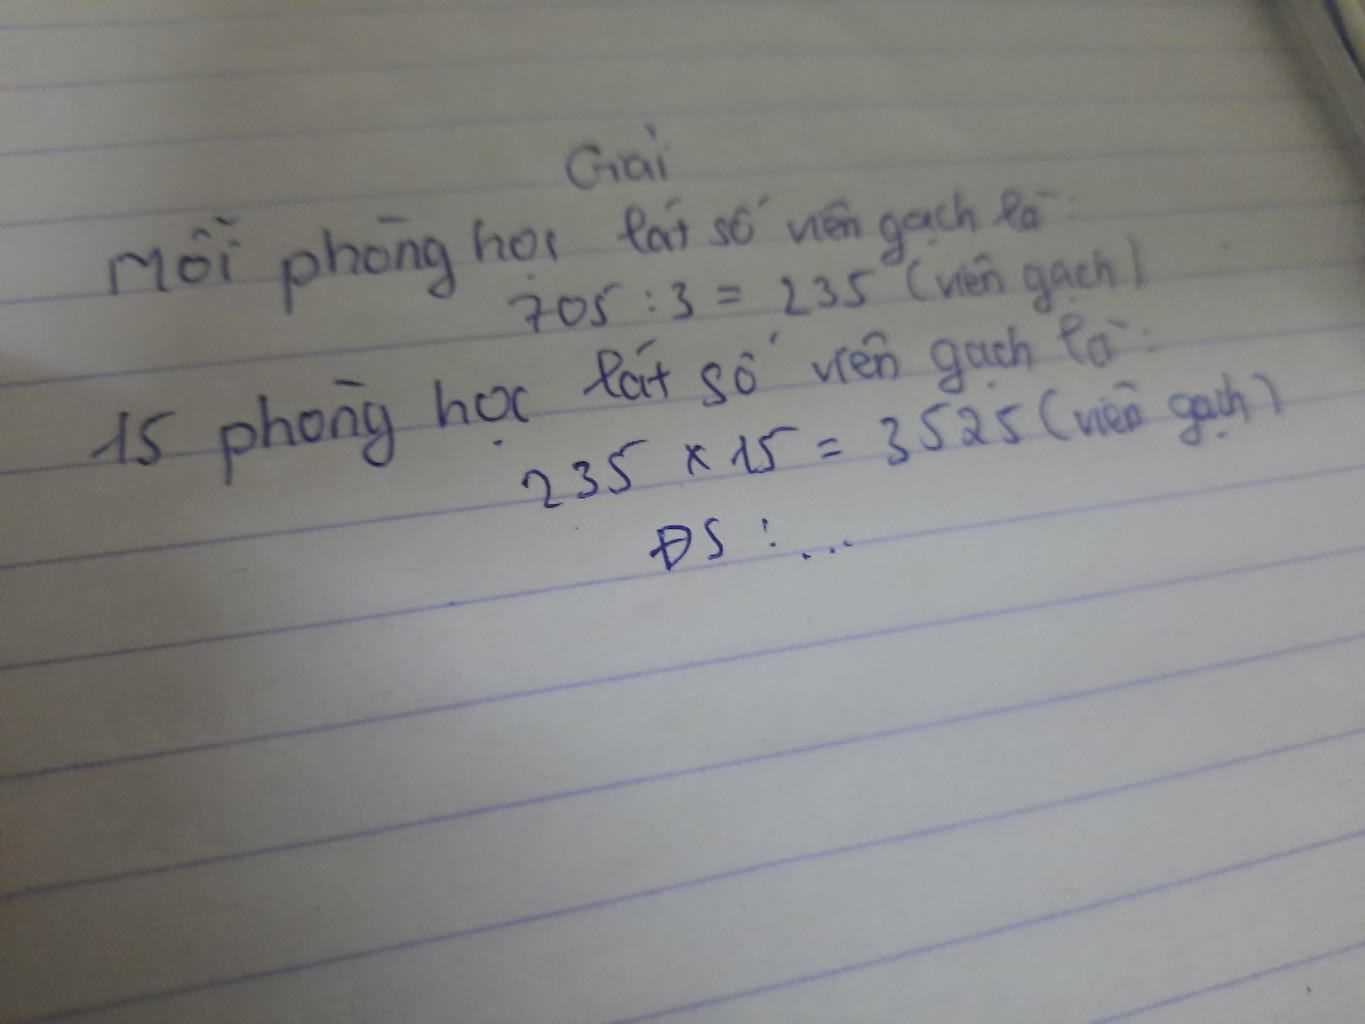 Giải
Mỗi phòng học lát số viên gạch là:
705 : 3 = 235 (viên gạch)
15 phòng học lát số viên gạch là:
235 x 15 = 3525 (viên gạch)
ĐS : ...